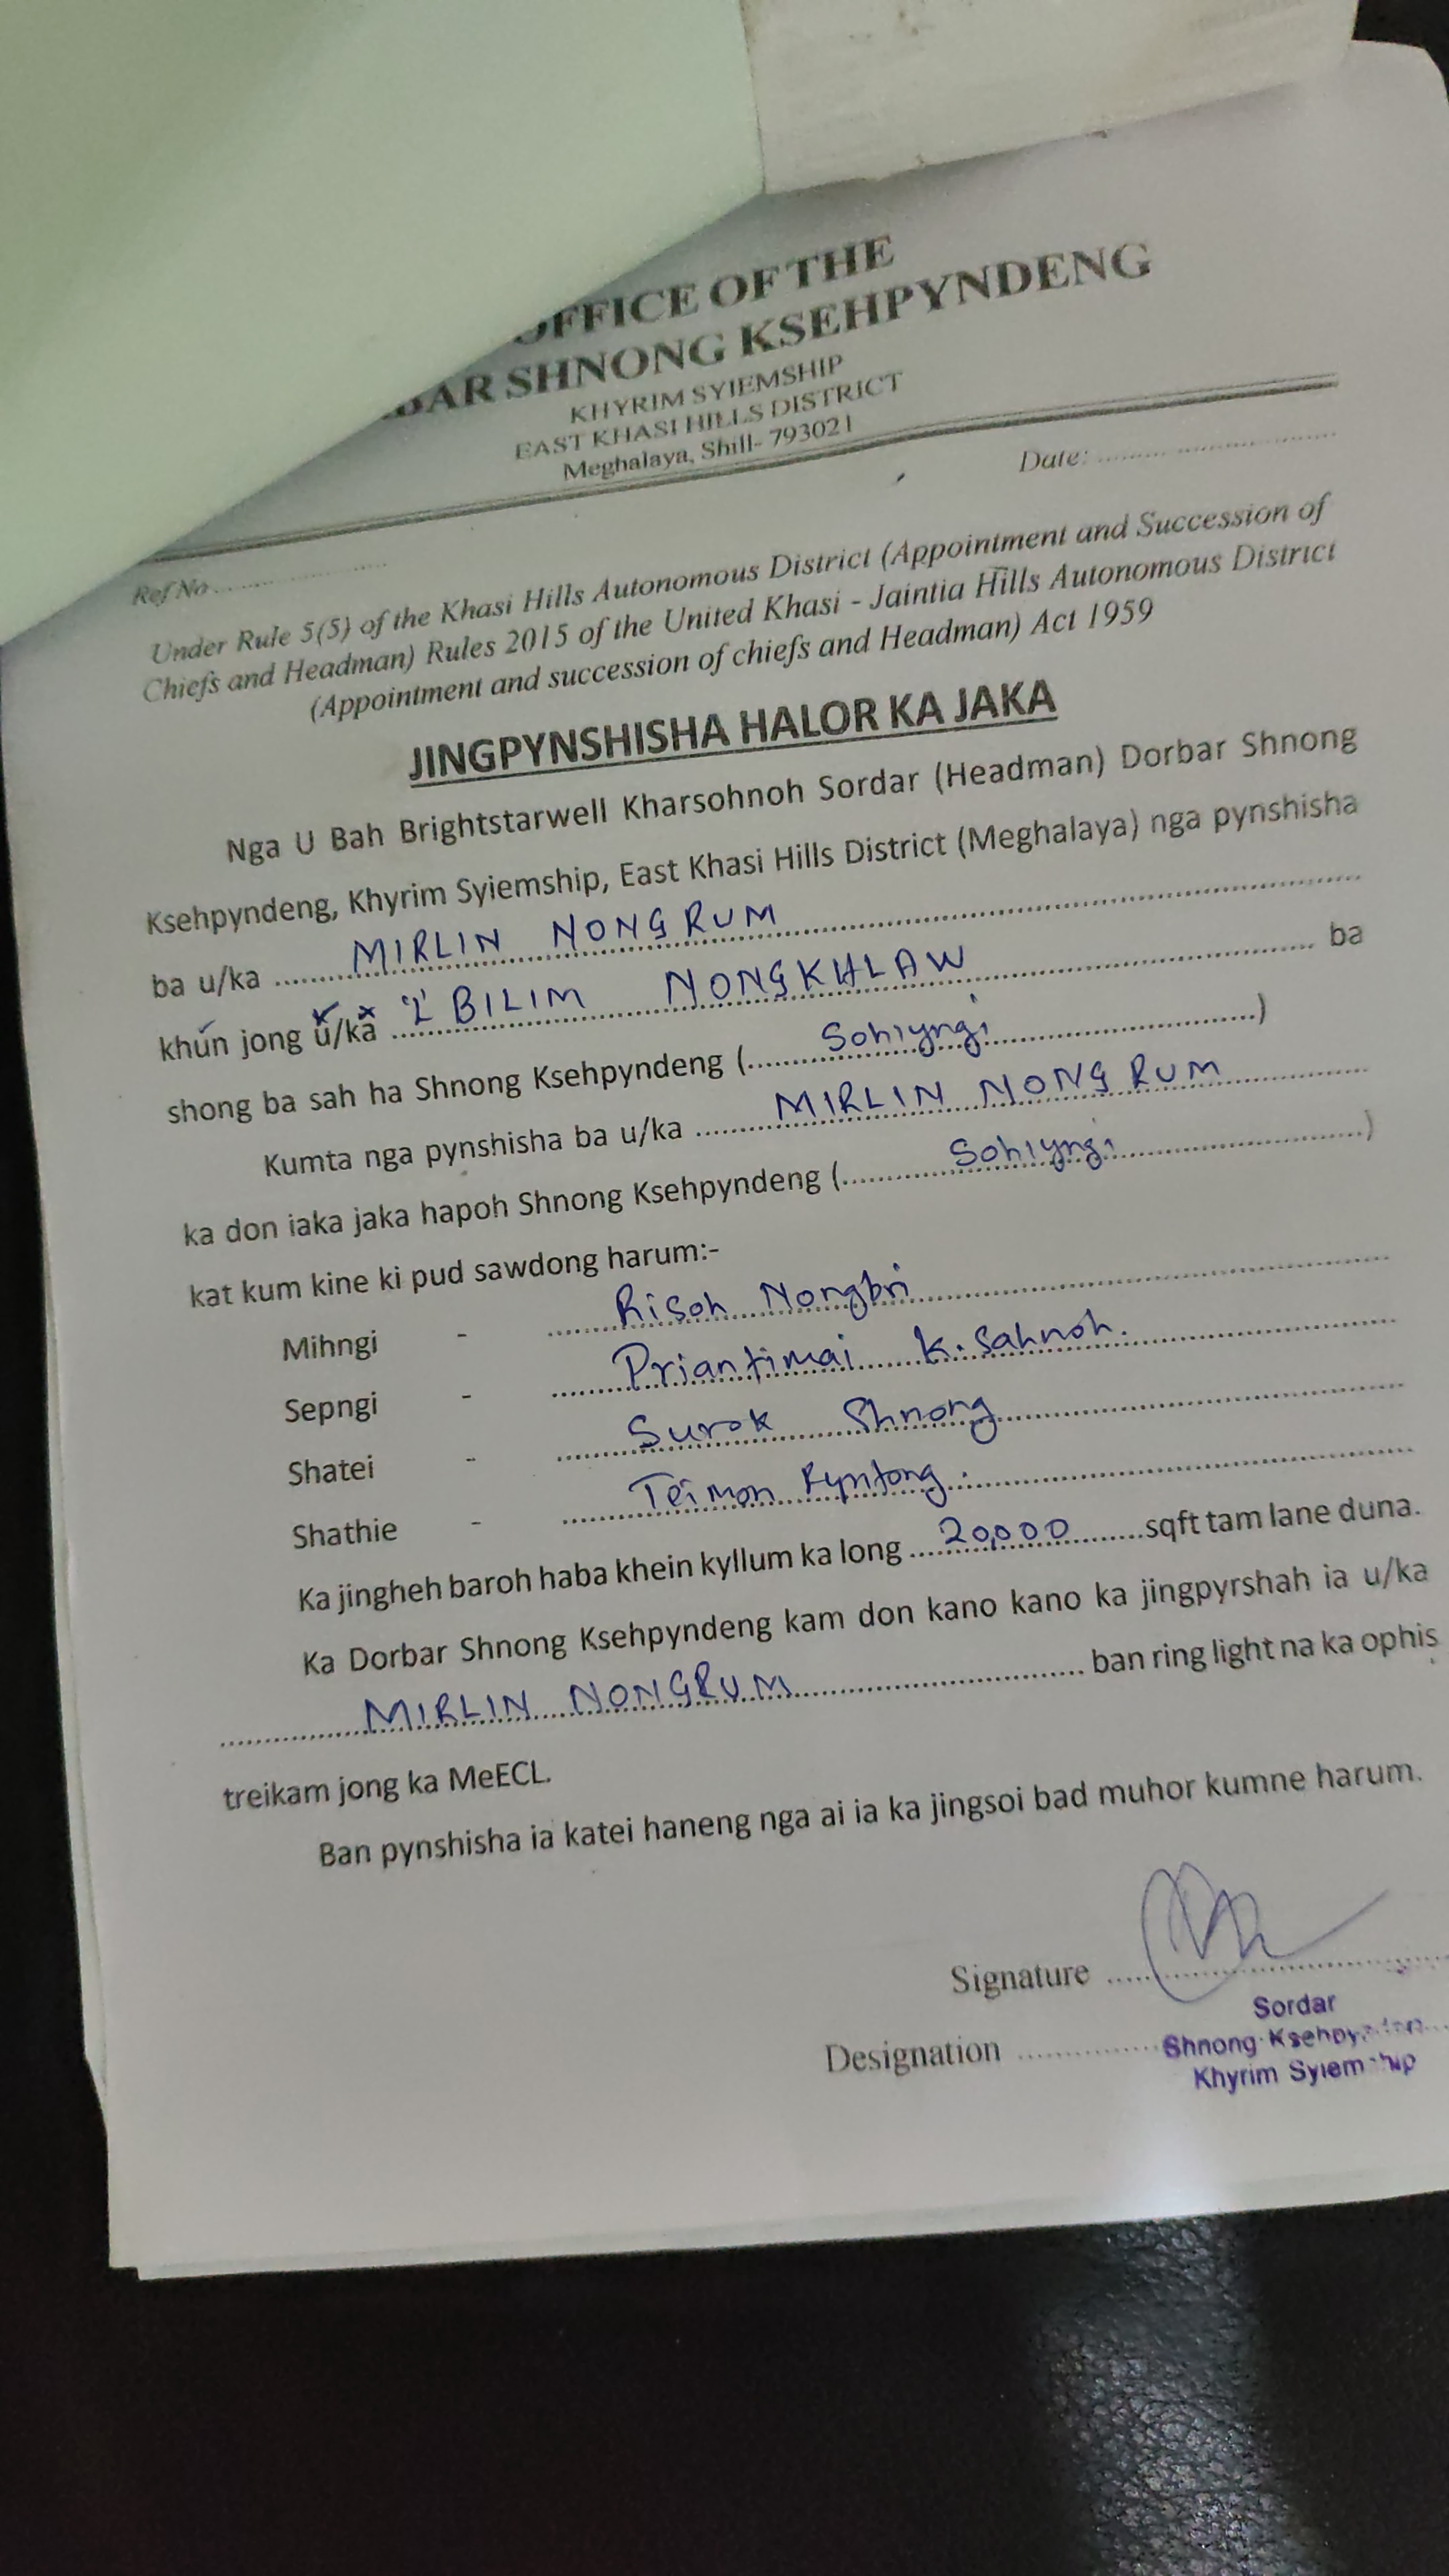 OFFICE OF THE
SHNONG KSEHPYNDENG
KHYRIM SYIEMSHIP
EAST KHASI HILLS DISTRICT
Meghalaya, Shill- 793021
Ref No....................
Date: ....................
Under Rule 5(5) of the Khasi Hills Autonomous District (Appointment and Succession of
Chiefs and Headman) Rules 2015 of the United Khasi - Jaintia Hills Autonomous District
(Appointment and succession of chiefs and Headman) Act 1959
JINGPYNSHISHA HALOR KA JAKA
Nga U Bah Brightstarwell Kharsohnoh Sordar (Headman) Dorbar Shnong
Ksehpyndeng, Khyrim Syiemship, East Khasi Hills District (Meghalaya) nga pynshisha
ba u/ka ..........MIRLIN NONGRUM....................
khun jong u/ka ..........BILIM NONGKHLAW.................... ba
shong ba sah ha Shnong Ksehpyndeng (..........Sohiyngi....................)
Kumta nga pynshisha ba u/ka ..........MIRLIN NONGRUM....................
ka don iaka jaka hapoh Shnong Ksehpyndeng (..........Sohiyngi....................)
kat kum kine ki pud sawdong harum:-
Mihngi - ..........Risoh Nongbri....................
Sepngi - ..........Priantimai K. Sahnoh.....................
Shatei - ..........Surok Shnong....................
Shathie - ..........Teimon Ryntong.....................
Ka jingheh baroh haba khein kyllum ka long ....20,000..........sqft tam lane duna.
Ka Dorbar Shnong Ksehpyndeng kam don kano kano ka jingpyrshah ia u/ka
..........MIRLIN NONGRUM.................... ban ring light na ka ophis
treikam jong ka MeECL.
Ban pynshisha ia katei haneng nga ai ia ka jingsoi bad muhor kumne harum.
Signature ....................
Sordar
Designation ....................
Shnong
Khyrim Syiemship